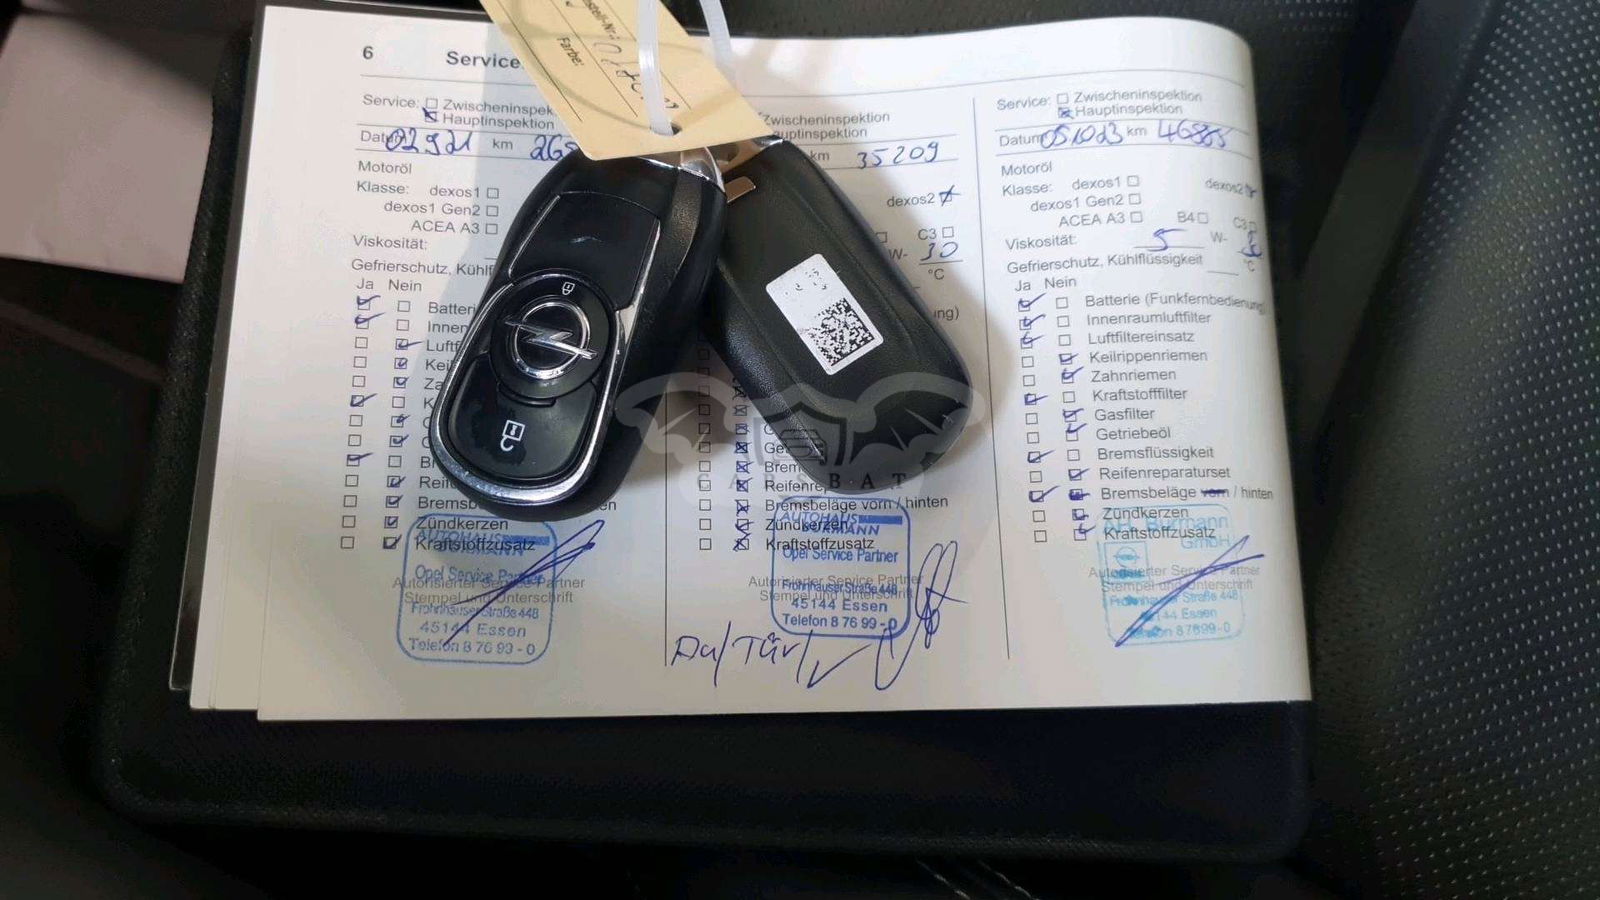 Farbe:
6 Service
Service: Zwischeninspek
Hauptinspektion
Datum 02 9 21 km 265
Motoröl
Klasse: dexos1
dexos1 Gen2
ACEA A3
Viskosität:
Gefrierschutz, Kühlf
Ja Nein
Batter
Innen
Luftf
Keil
Za
K
Br
Reif
Bremsbe
Zündkerzen
Kraftstoffzusatz
AUTOHAUS
Opel Service Partner
Autorisierter Service Partner
Stempel und Unterschrift
Frohnhauser Straße 448
45144 Essen
Telefon 8 76 99 - 0
Zwischeninspektion
auptinspektion
km 35209
dexos2
C3
W- 30
°C
ung)
Ge
Brem
Reifenrep
Bremsbeläge vorn / hinten
Zündkerzen
Kraftstoffzusatz
AUTOHAUS
Opel Service Partner
Autorisierter Service Partner
Stempel und Unterschrift
Frohnhauser Straße 448
45144 Essen
Telefon 8 76 99 - 0
Service: Zwischeninspektion
Hauptinspektion
Datum 051023 km 46865
Motoröl
Klasse: dexos1 dexos2
dexos1 Gen2
ACEA A3 B4 C3
Viskosität: 5 W- 30
Gefrierschutz, Kühlflüssigkeit °C
Ja Nein
Batterie (Funkfernbedienung)
Innenraumluftfilter
Luftfiltereinsatz
Keilrippenriemen
Zahnriemen
Kraftstofffilter
Gasfilter
Getriebeöl
Bremsflüssigkeit
Reifenreparaturset
Bremsbeläge vorn / hinten
Zündkerzen
Kraftstoffzusatz
GmbH
Autorisierter Service Partner
Stempel und Unterschrift
Frohnhauser Straße 448
45144 Essen
Telefon 8 76 99 - 0